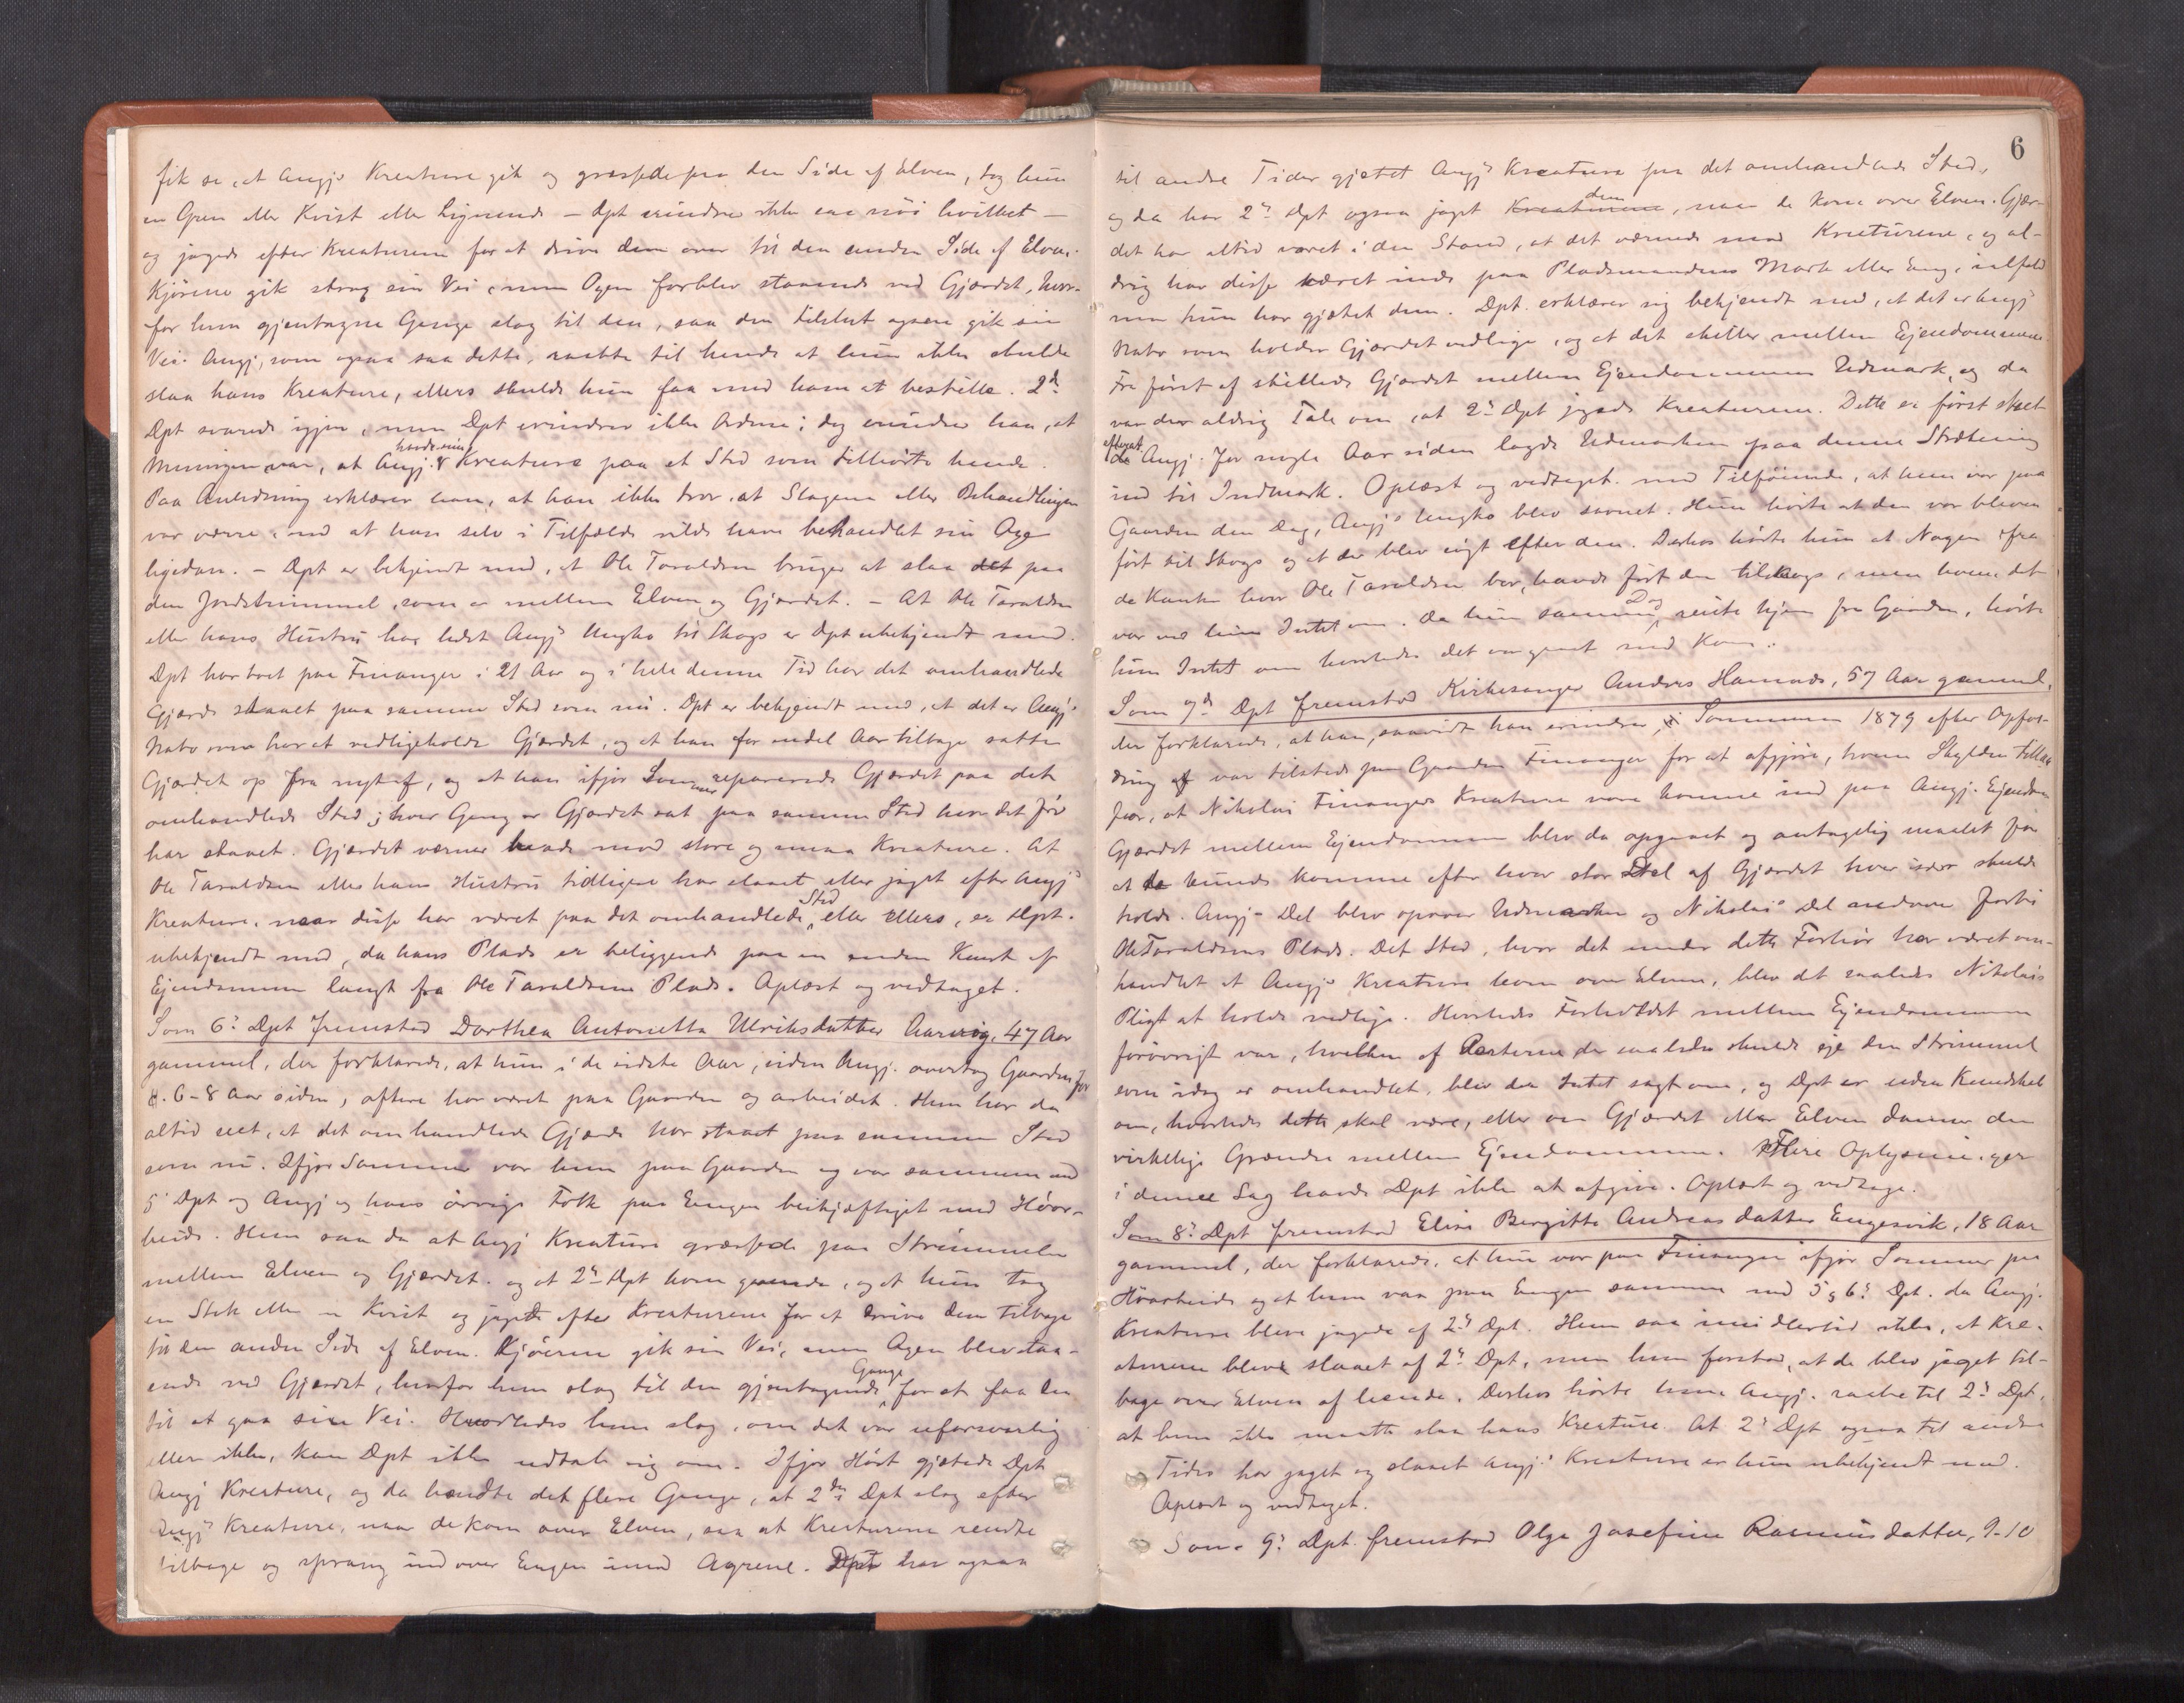 fik se, at Angj's Kreature gik og græssede paa den Side af Elven, tog hun
en Gren eller Kvist eller Lignende – Dpt erindrer ikke saa nöi hvilket –
og jagede efter Kreaturene for at drive dem over til den anden Side af Elven.
Kjörene gik strax sin Vei, men Oxen forblev staaende ved Gjærdet, hvor-
for hun gjentagne Gange slog til den, saa den tilslut ogsaa gik sin
Vei. Angj, som ogsaa saa dette, raabte til hende at hun ikke skulde
slaa hans Kreature, ellers skulde hun faa med ham at bestille. 2d
Dpt svarede igjen, men Dpt erindrer ikke Ordene; dog erindrer han, at
Meningen var, at Angj. havde sine Kreature paa et Sted som tilhörte hende.
Paa Anledning erklærer han, at han ikke tror, at Slagene eller Behandlingen
var værre, end at han selv i Tilfælde vilde have behandlet sin Oxe
ligedan. – Dpt er bekjendt med, at Ole Taraldsen bruger at slaa det paa
den Jordstrimmel, som er mellem Elven og Gjærdet. – At Ole Taraldsen
eller hans Hustru har ledet Angj's Ungko til Skogs er Dpt ubekjendt med.
Dpt har boet paa Finanger i 21 Aar og i hele denne Tid har det omhandlede
Gjærde staaet paa samme Sted som nu. Dpt er bekjendt med, at det er Angj's
Nabo som har at vedligeholde Gjærdet, og at han for endel Aar tilbage satte
Gjærdet op fra nyt af, og at han ifjor Sommer reparerede Gjærdet paa det
omhandlede Sted; hver Gang er Gjærdet sat paa samme Sted hvor det för
har staaet. Gjærdet værner baade mod store og smaa Kreature. At
Ole Taraldsen eller hans Hustru tidligere har slaaet eller jaget efter Angj's
Kreature, naar disse har været paa det omhandlede Sted eller ellers, er Dpt.
ubekjendt med, da hans Plads er beliggende paa en anden Kant af
Ejendommen langt fra Ole Taraldsens Plads. Oplæst og vedtaget.
Som 6. Dpt fremstod Dorthea Antonetta Ulriksdatter Aarvig, 47 Aar
gammel, der forklarede, at hun i de sidste Aar, siden Angj. overtog Gaarden for
6-8 Aar siden, oftere har været paa Gaarden og arbeidet. Hun har da
altid seet, at det omhandlede Gjærde har staaet paa samme Sted
som nu. Ifjor Sommer var hun paa Gaarden og var sammen med
5 Dpt og Angj og hans övrige Folk paa Engen beskjæftiget med Höar-
beide. Hun saa da at Angj Kreature græssede paa Strimmelen
mellem Elven og Gjærdet. og at 2d Dpt kom gaaende, og at hun tog
en Stok eller en Kvist og jagede efter Kreaturene for at drive dem tilbage
til den anden Side af Elven. Kjörene gik sin Vei, men Oxen blev staa-
ende ved Gjærdet, hvorfor hun slog til den gjentagende Gange for at faa den
til at gaa sin Vei. Hvorledes hun slog, om det var uforsvarlig
eller ikke, kan Dpt ikke udtale sig om. Ifjor Höst gjætede Dpt
Angj Kreature, og da hændte det flere Gange, at 2den Dpt slog efter
Angj's Kreature, naar de kom over Elven, saa at Kreaturene rendte
tilbage og sprang ind over Engen imod Agrene. Dpt har ogsaa
6
til andre Tider gjætet Angj's Kreature paa det omhandlede Sted,
og da har 2d Dpt ogsaa jaget dem, naar de kom over Elven. Gjær-
det har altid været i den Stand, at det værnede mod Kreaturene, og al-
drig har disse været inde paa Pladsmandens Mark eller Eng, ialfald
naar hun har gjætet dem. Dpt. erklærer sig bekjendt med, at det er Angj's
Nabo som holder Gjærdet vedlige, og at det skiller mellem Ejendommene.
Fra först af skillede Gjærdet mellem Ejendommenes Udmark, og da
var der aldrig Tale om, at 2d Dpt jagede Kreaturene. Dette er först skeet
efterat Angj. for nogle Aar siden lagde Udmarken paa denne Strækning
ind til Indmark. Oplæst og vedtaget. med Tilföiende, at hun var paa
Gaarden den Dag, Angj's Ungko blev savnet. Hun hörte at den var bleven
fört til Skogs og at der blev sögt efter den. Derhos hörte hun at Nogen fra
de Kanter hvor Ole Taraldsen bor, havde fört den tilskogs, men hvem det
var ved hun Intet om. Da hun samme Dag reiste hjem fra Gaarden, hörte
hun Intet om hvorledes det var gaaet med Koen.
Som 7d Dpt fremstod Kirkesanger Anders Hamnes, 57 Aar gammel,
der forklarede, at han, saavidt han erindrer, i Sommeren 1879 efter Opfor-
dring var tilstede paa Gaarden Finanger for at afgjöre, hvem Skylden tillaa
for, at Nikolai Finangers Kreature vare komne ind paa Angj. Ejendom
Gjærdet mellem Ejendommene blev da opgaaet og antagelig maalet for
at de kunde komme efter hvor stor Del af Gjærdet hver især skulde
holde. Angj's Del blev opover Udmarken og Nikolais Del nedover forbi
Ole Taraldsens Plads. Det Sted, hvor det under dette Forhör har været om-
handlet at Angj's Kreature kom over Elven, blev det saaledes Nikolais
Pligt at holde vedlige. Hvorledes Forholdet mellem Ejendommene
forövrigt var, hvilken af Parterne der saaledes skulde eje den Strimmel
som idag er omhandlet, blev der Intet sagt om, og Dpt er uden Kundskab
om, hvorledes dette skal være, eller om Gjærdet eller Elven danner den
virkelige Grændse mellem Ejendommene. Flere Oplysninger
i denne Sag havde Dpt ikke at afgive. Oplæst og vedtaget.
Som 8d Dpt fremstod Elise Bergitte Andreasdatter Engesvik, 18 Aar
gammel, der forklarede, at hun var paa Finanger ifjor Sommer paa
Höarbeide og at hun var paa Engen sammen med 5 & 6d Dpt. da Angj.
Kreature bleve jagede af 2d Dpt. Hun saa imidlertid ikke, at Kre-
aturene bleve slaaet af 2d Dpt, men hun forstod, at de blev jaget til-
bage over Elven af hende. Derhos hörte hun Angj. raabe til 2d Dpt,
at hun ikke maatte slaa hans Kreature. At 2d Dpt ogsaa til andre
Tider har jaget og slaaet Angj's Kreature er hun ubekjendt med.
Oplæst og vedtaget.
Som 9d Dpt. fremstod Olga Josefine Rasmusdatter, 9-10